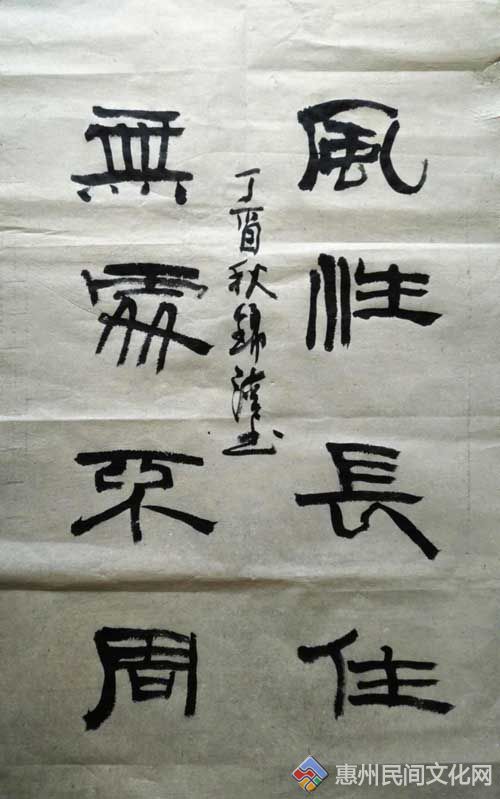 風性長住
無處不周
丁酉秋錦书
惠州民间文化网